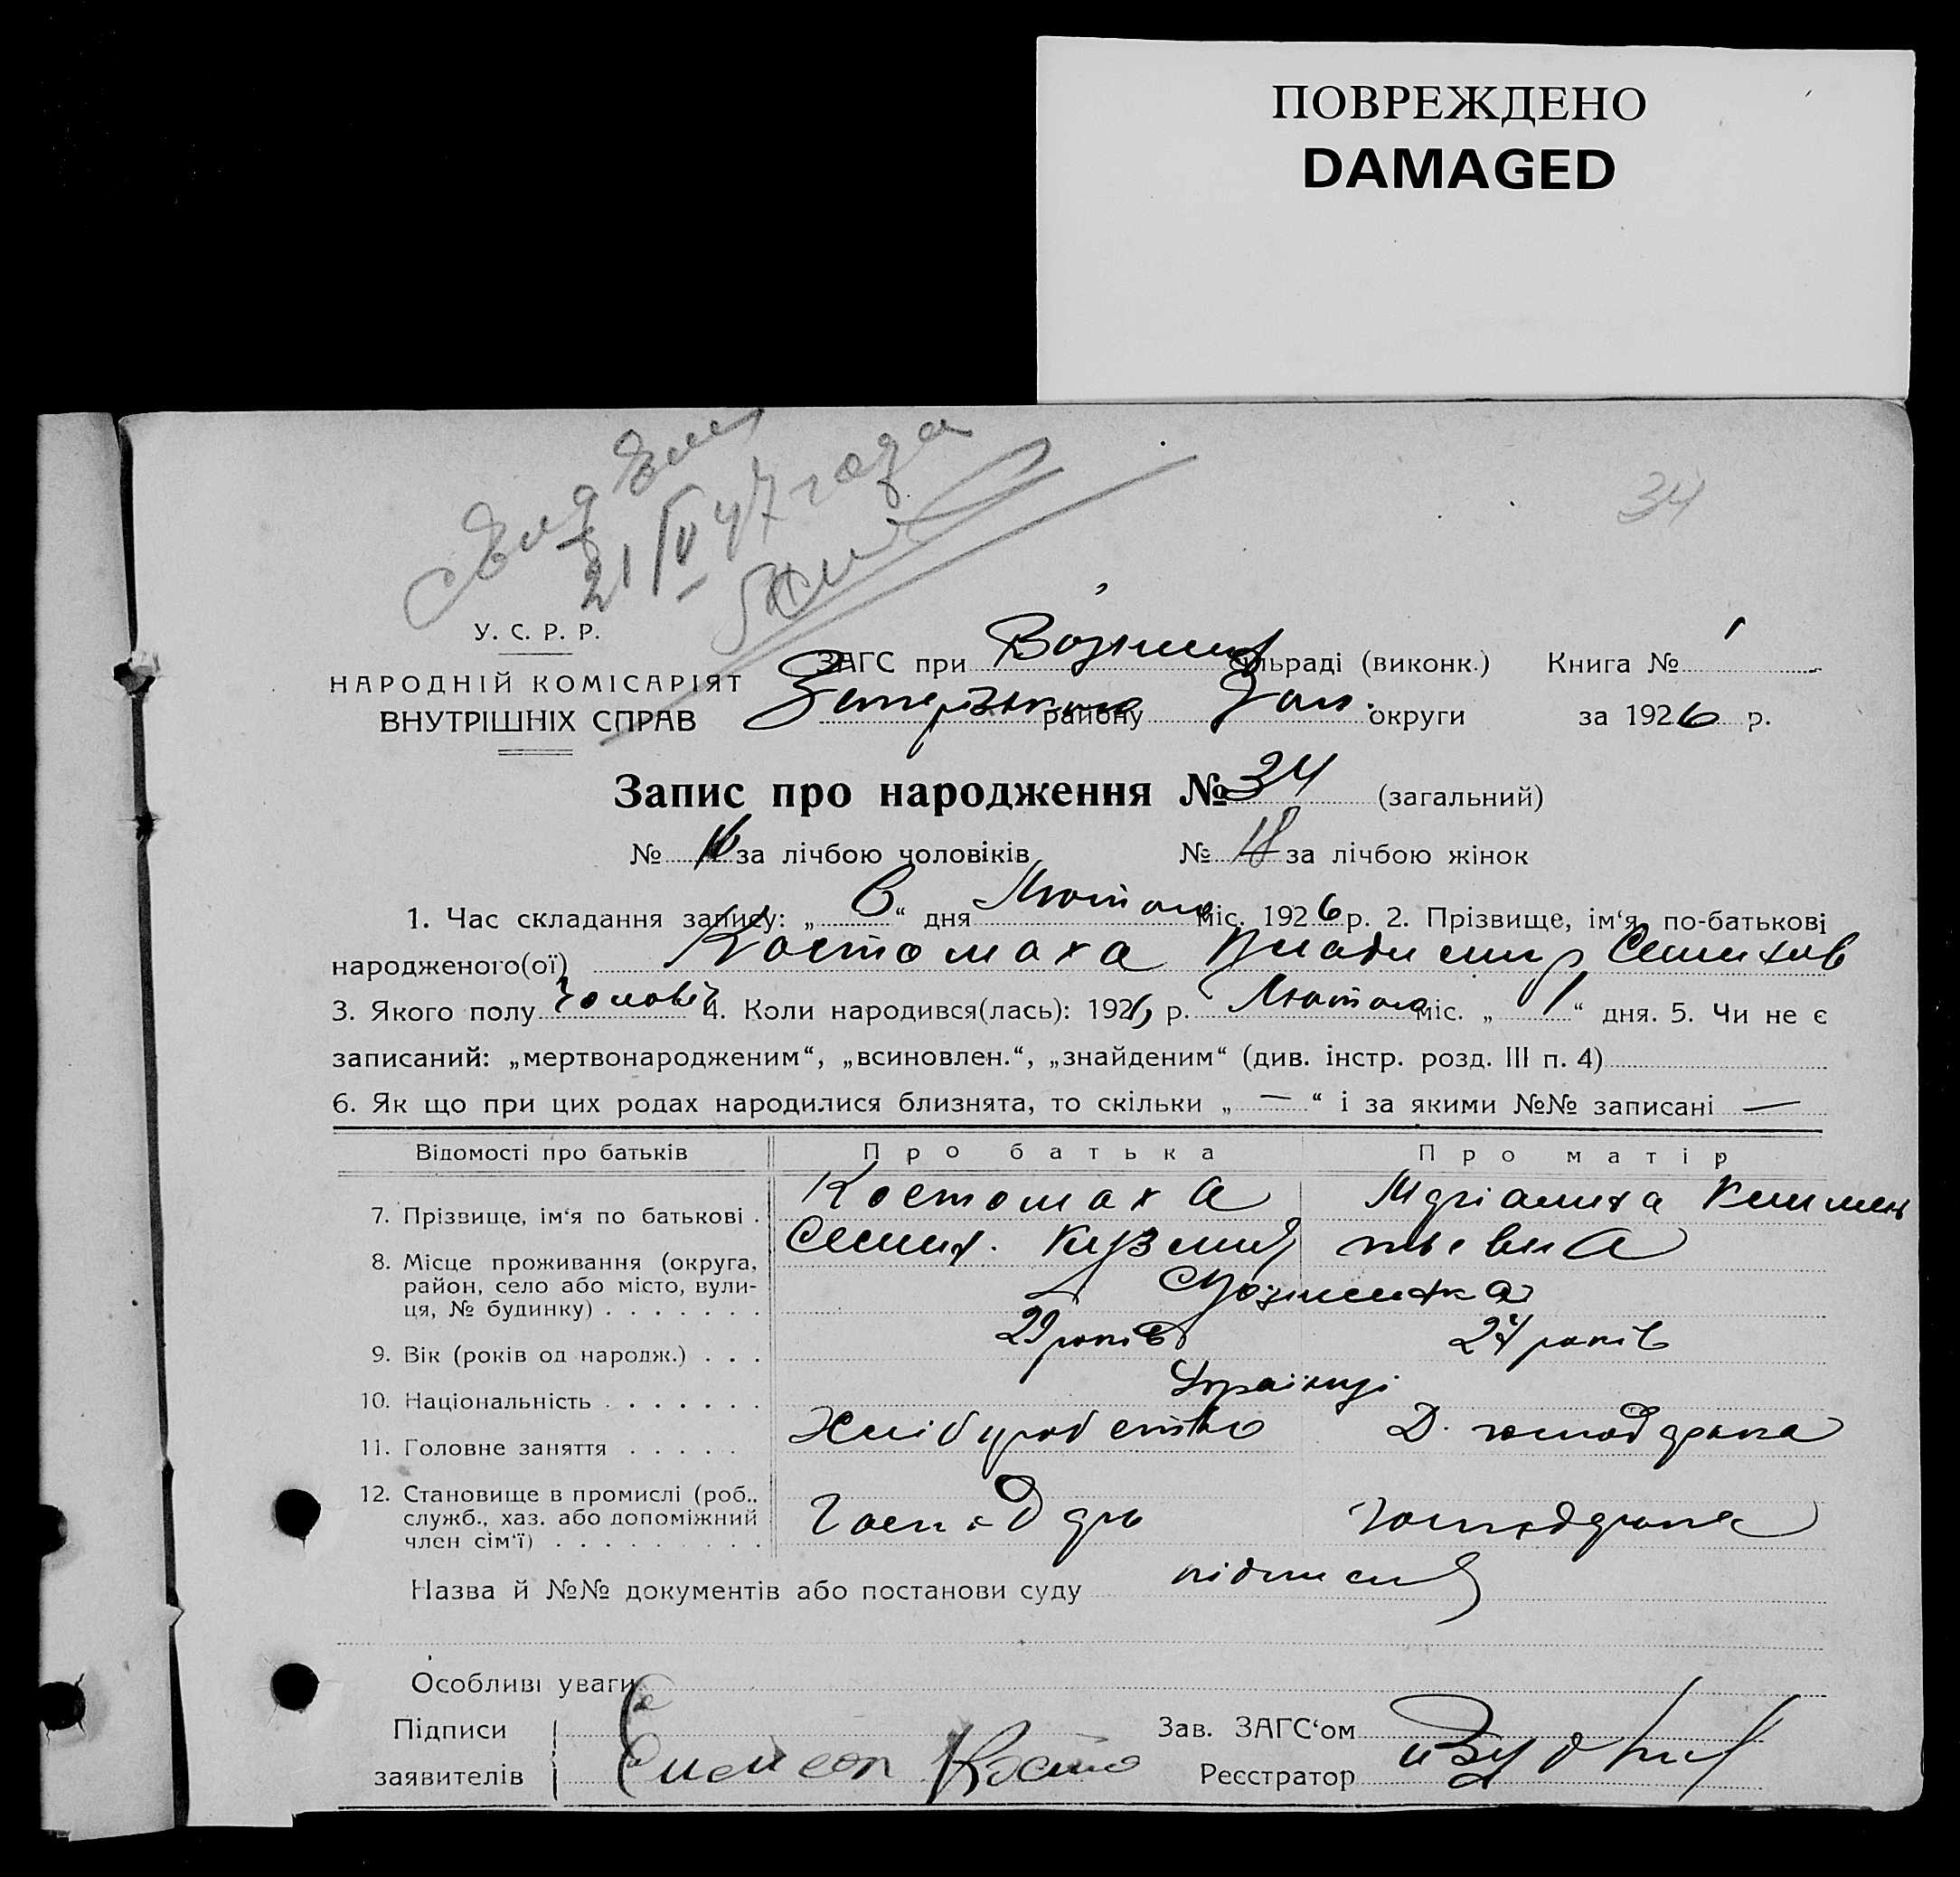 ПОВРЕЖДЕНО
DAMAGED
21/IV 47 года
34
У. С. Р. Р.
НАРОДНІЙ КОМІСАРІЯТ
ВНУТРІШНІХ СПРАВ
ЗАГС при сільраді (виконк.) Книга № 1
району округи за 1926 р.
Запис про народження № 34 (загальний)
№ 16 за лічбою чоловіків № 18 за лічбою жінок
1. Час складання запису: „ 6 “ дня Лютого міс. 1926 р. 2. Прізвище, ім‘я, по-батькові
народженого(ої) Костомаха Владимир Семенов
3. Якого полу чоловіч 4. Коли народився(лась): 1926 р. Лютого міс. „ 1 “ дня. 5. Чи не є
записаний: „мертвонародженим“, „всиновлен.“, „знайденим“ (див. інстр. розд. III п. 4)
6. Як що при цих родах народилися близнята, то скільки „ — “ і за якими №№ записані —
Відомості про батьків Про батька Про матір
7. Прізвище, ім‘я по батькові . Костомаха
Семен. Кузмич
8. Місце проживання (округа,
район, село або місто, вули-
ця, № будинку) . . . . . . .
9. Вік (років од народж.) . . . 29 років 24 років
10. Національність . . . . . . . Українці
11. Головне заняття . . . . . Хліборобство Д. господарка
12. Становище в промислі (роб.,
служб., хаз. або допоміжний
член сім‘ї) . . . . . . . . . Господарь господарка
Назва й №№ документів або постанови суду
Особливі уваги
Підписи
заявителів Костo
Зав. ЗАГС‘ом
Реєстратор